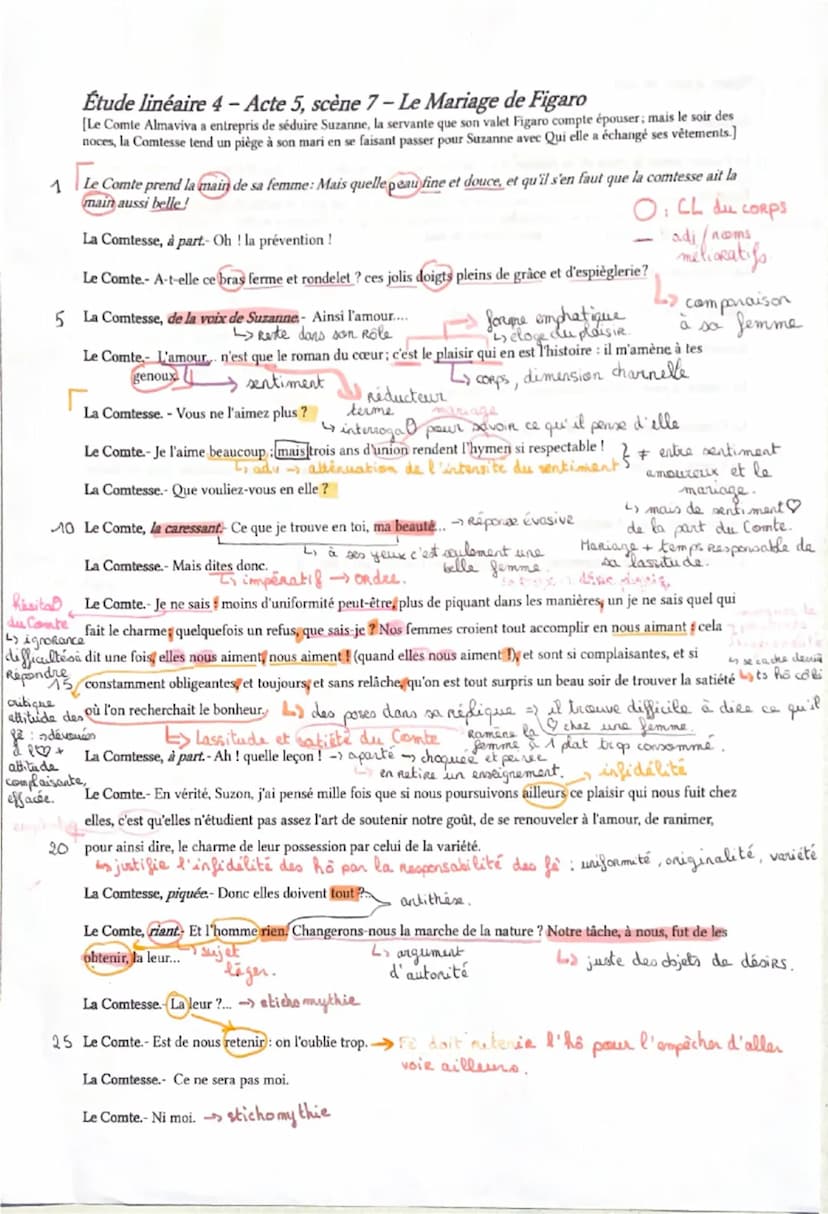 Étude linéaire 4 – Acte 5, scène 7 – Le Mariage de Figaro
[Le Comte Almaviva a entrepris de séduire Suzanne, la servante que son valet Figaro compte épouser ; mais le soir des
noces, la Comtesse tend un piège à son mari en se faisant passer pour Suzanne avec Qui elle a échangé ses vêtements.]
1 Le Comte prend la main de sa femme : Mais quelle peau fine et douce, et qu'il s'en faut que la comtesse ait la
main aussi belle !
O : CL du corps
La Comtesse, à part.- Oh ! la prévention !
— adj / noms
mélioratifs
Le Comte.- A-t-elle ce bras ferme et rondelet ? ces jolis doigts pleins de grâce et d'espièglerie ?
↳ comparaison
à sa femme
5 La Comtesse, de la voix de Suzanne.- Ainsi l'amour....
→ forme emphatique
↳ éloge du plaisir.
↳ Reste dans son rôle
Le Comte.- L'amour... n'est que le roman du cœur ; c'est le plaisir qui en est l'histoire : il m'amène à tes
genoux.
→ sentiment
↳ corps, dimension charnelle
réducteur
La Comtesse. - Vous ne l'aimez plus ?
terme
mariage
↳ interroga° pour savoir ce qu'il pense d'elle
Le Comte.- Je l'aime beaucoup ; mais trois ans d'union rendent l'hymen si respectable !
} ≠ entre sentiment
↳ adv → atténuation de l'intensité du sentiment
amoureux et le
mariage.
La Comtesse.- Que vouliez-vous en elle ?
↳ mais de sentiment ♡
de la part du Comte.
10 Le Comte, la caressant.- Ce que je trouve en toi, ma beauté...
→ Réponse évasive
Mariage + temps responsable de
sa lassitude.
↳ à ses yeux c'est seulement une
belle femme.
La Comtesse.- Mais dites donc.
↳ impératif → ordre.
Hésita°
du Comte
↳ ignorance
difficultés à
Répondre
Le Comte.- Je ne sais : moins d'uniformité peut-être, plus de piquant dans les manières, un je ne sais quel qui
fait le charme ; quelquefois un refus, que sais-je ? Nos femmes croient tout accomplir en nous aimant : cela
dit une fois, elles nous aiment, nous aiment ! (quand elles nous aiment !), et sont si complaisantes, et si
15 constamment obligeantes, et toujours, et sans relâche, qu'on est tout surpris un beau soir de trouver la satiété
où l'on recherchait le bonheur.
↳ se cache derrière
ts hô
critique
attitude des
fê : dévouées
à l'♡ +
attitude
complaisante,
effacée.
↳ des poses dans sa réplique ⇒ il trouve difficile à dire ce qu'il
♡ chez une femme.
↳ Lassitude et satiété du Comte
Ramène la
femme à 1 plat trop consommé.
La Comtesse, à part.- Ah ! quelle leçon !
→ aparté → choquée et
↳ en retire un enseignement.
→ infidélité
Le Comte.- En vérité, Suzon, j'ai pensé mille fois que si nous poursuivons ailleurs ce plaisir qui nous fuit chez
elles, c'est qu'elles n'étudient pas assez l'art de soutenir notre goût, de se renouveler à l'amour, de ranimer,
20 pour ainsi dire, le charme de leur possession par celui de la variété.
↳ justifie l'infidélité des hô par la responsabilité des fê : uniformité, originalité, variété
La Comtesse, piquée.- Donc elles doivent tout ?
antithèse.
Le Comte, riant.- Et l'homme rien. Changerons-nous la marche de la nature ? Notre tâche, à nous, fut de les
obtenir, la leur...
→ sujet
léger.
↳ argument
d'autorité
↳ juste des objets de désirs.
La Comtesse.- La leur ?...
→ stichomythie
25 Le Comte.- Est de nous retenir : on l'oublie trop.
→ Fê doit retenir l'hô pour l'empêcher d'aller
voir ailleurs.
La Comtesse.- Ce ne sera pas moi.
Le Comte.- Ni moi.
→ stichomythie